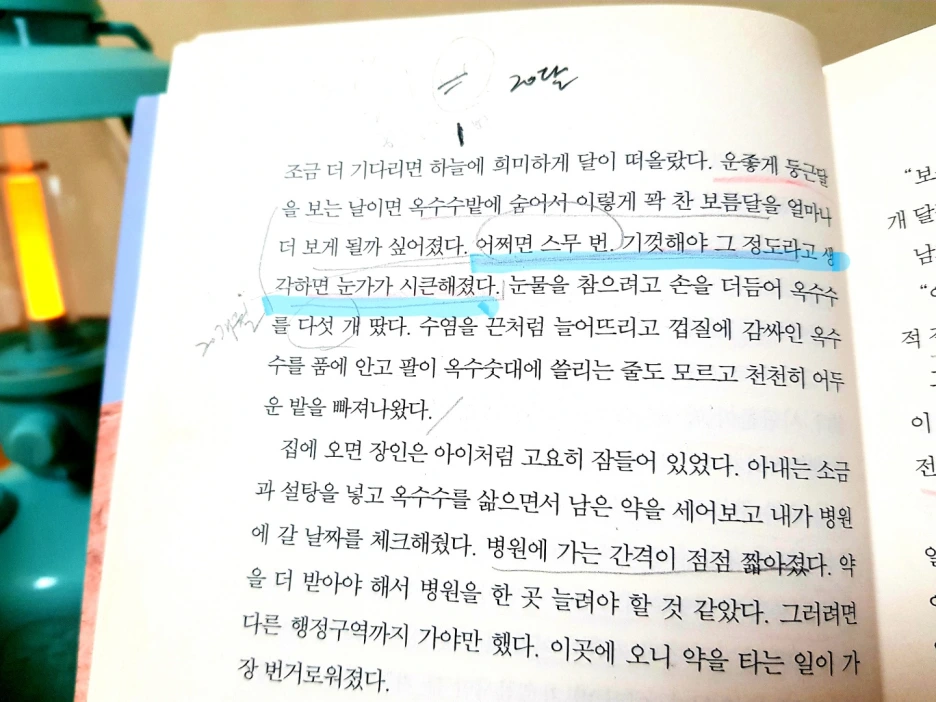 20달
조금 더 기다리면 하늘에 희미하게 달이 떠올랐다. 운좋게 둥근달
을 보는 날이면 옥수수밭에 숨어서 이렇게 꽉 찬 보름달을 얼마나
더 보게 될까 싶어졌다. 어쩌면 스무 번. 기껏해야 그 정도라고 생
각하면 눈가가 시큰해졌다. 눈물을 참으려고 손을 더듬어 옥수수
를 다섯 개 땄다. 수염을 끈처럼 늘어뜨리고 껍질에 감싸인 옥수
20개월
수를 품에 안고 팔이 옥수숫대에 쓸리는 줄도 모르고 천천히 어두
운 밭을 빠져나왔다.
집에 오면 장인은 아이처럼 고요히 잠들어 있었다. 아내는 소금
과 설탕을 넣고 옥수수를 삶으면서 남은 약을 세어보고 내가 병원
에 갈 날짜를 체크해줬다. 병원에 가는 간격이 점점 짧아졌다. 약
을 더 받아야 해서 병원을 한 곳 늘려야 할 것 같았다. 그러려면
다른 행정구역까지 가야만 했다. 이곳에 오니 약을 타는 일이 가
장 번거로워졌다.
“보
개 달
남
적
이
전